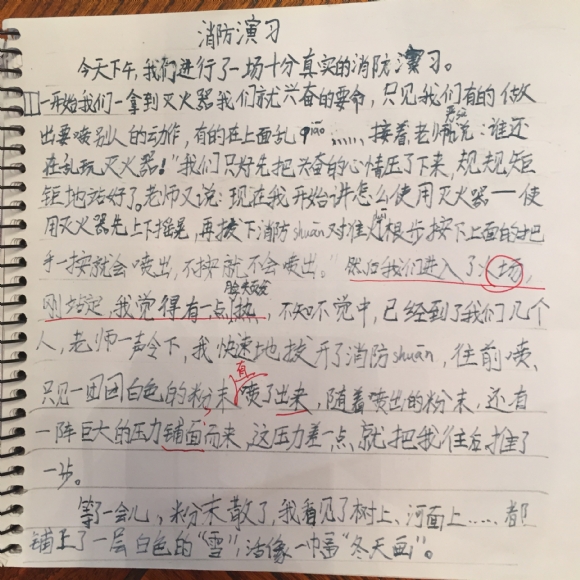 消防演习
今天下午,我们进行了一场十分真实的消防演习。
一开始我们一拿到灭火器我们就兴奋的要命,只见我们有的做
出要喷别人的动作,有的在上面乱qiāo……,接着,老师说:谁还
在乱玩灭火器!"我们只好先把兴奋的心情压了下来,规规矩
钜地站好了。老师又说:现在我开始讲怎么使用灭火器——使
用灭火器先上下摇晃,再拔下消防shuān对准火根部按下上面的把
手一按就会喷出,不按就不会喷出。"然后我们进入了场,
刚站定,我觉得有一点热,不知不觉中,已经到了我们几个
人,老师一声令下,我快速地拔开了消防shuān,往前喷、
只见一团团白色的粉末喷了出来,随着喷出的粉末,还有
一阵巨大的压力铺面而来,这压力差一点,就把我往后推了
一步。
等了一会儿,粉末散了,我看见了树上、河面上……都
铺上了一层白色的"雪",活像一幅"冬天画"。